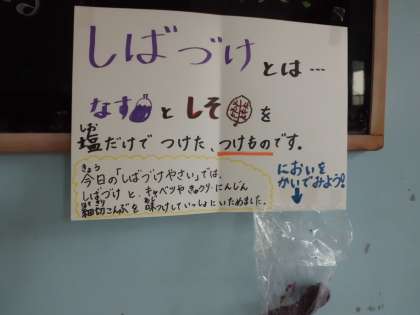 しばづけとは…
なすとしそを
塩だけでつけた、つけものです。
しお
今日の「しばづけやさい」では、
きょう
しばづけと、キャベツやきゅうり・にんじん
細切こんぶを味つけしていっしょにいためました。
ほそぎり
あじ
においを
かいでみよう!